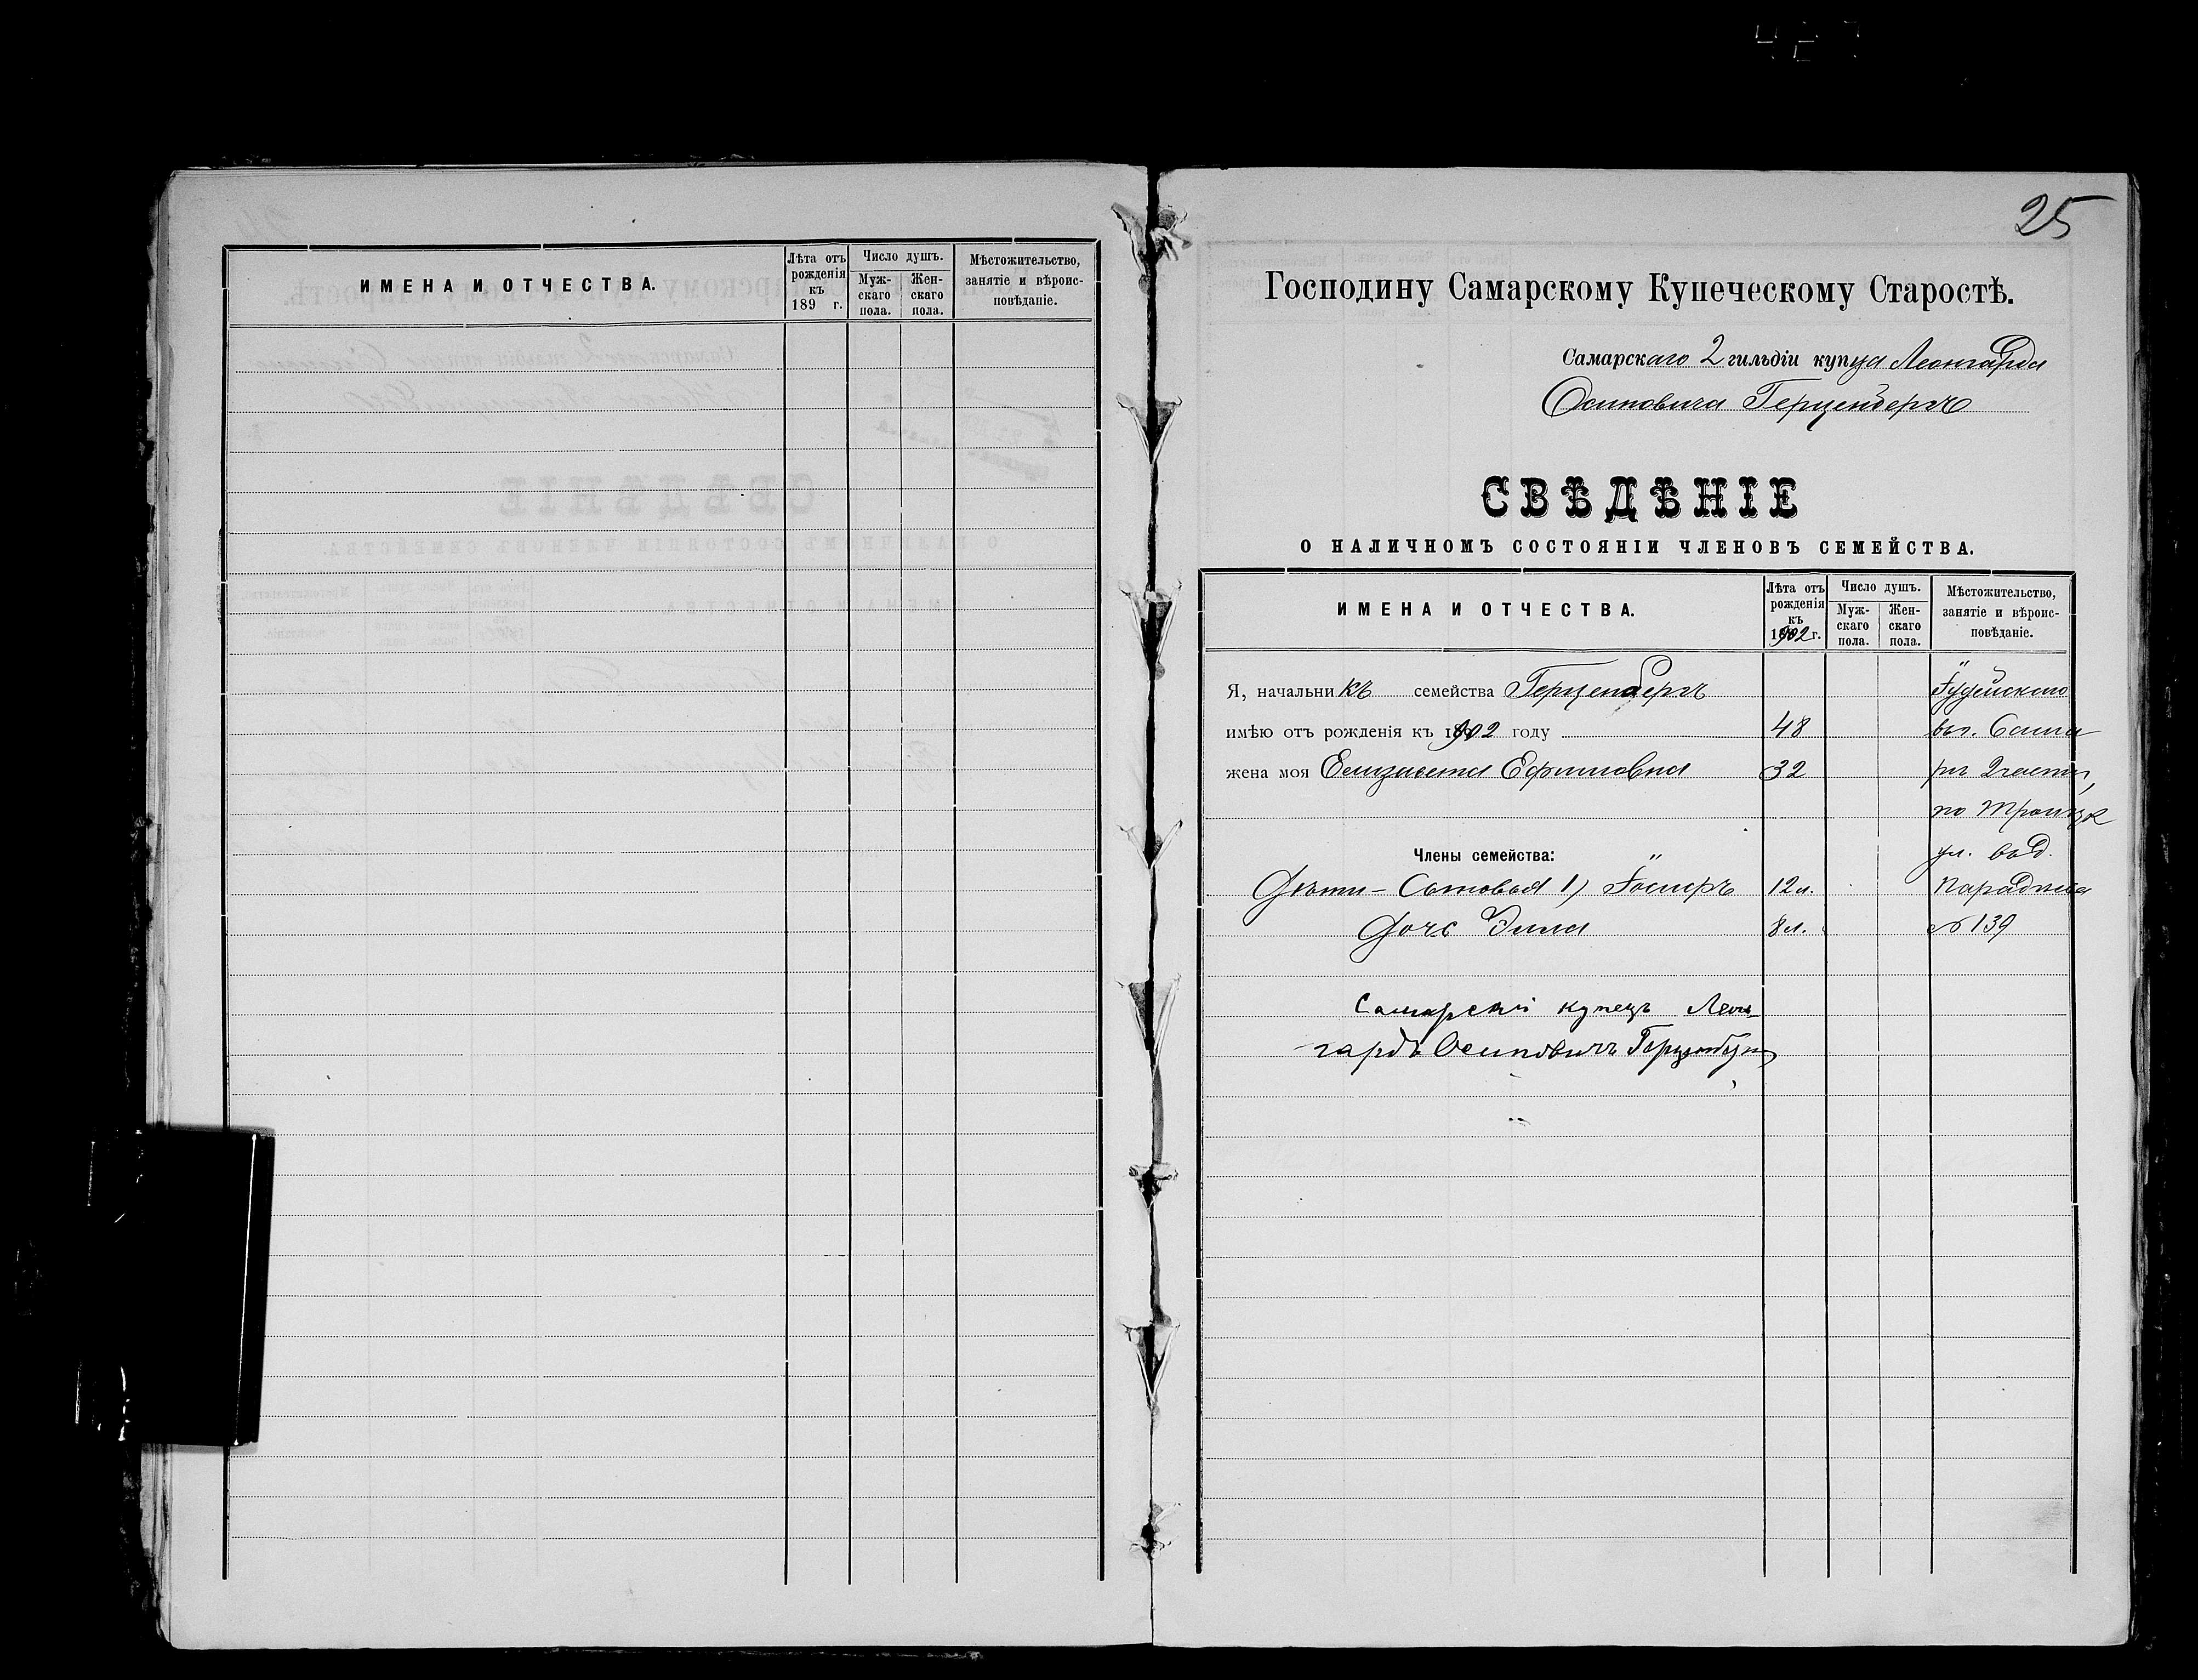 ИМЕНА И ОТЧЕСТВА.
Лѣта отъ рожденія къ 189 г.
Число душъ.
Мужскаго пола.
Женскаго пола.
Мѣстожительство, занятіе и вѣроисповѣданіе.
25
Господину Самарскому Купеческому Старостѣ.
Самарскаго 2 гильдіи купца Леонгарда
Осиповича Герценбергъ
СВѢДѢНІЕ
О НАЛИЧНОМЪ СОСТОЯНІИ ЧЛЕНОВЪ СЕМЕЙСТВА.
ИМЕНА И ОТЧЕСТВА.
Лѣта отъ рожденія къ 1902 г.
Число душъ.
Мужскаго пола.
Женскаго пола.
Мѣстожительство, занятіе и вѣроисповѣданіе.
Я, начальникъ семейства Герценбергъ Іудейскаго
имѣю отъ рожденія къ 1902 году 48
жена моя Елизавета Ефимовна 32 2 части,
по Троицк
Члены семейства: ул. въ д.
Дѣти - Сыновья 1) Іосифъ 12 л.
Дочь 8 л. № 139
Самарскій купецъ Леон-
гардъ Осиповичъ Герценбергъ